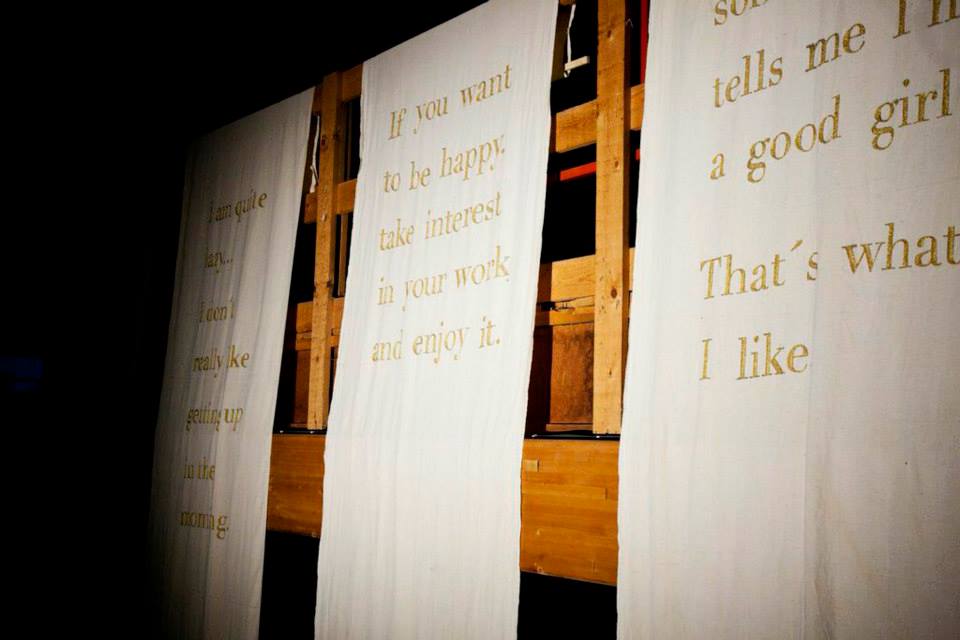 I am quite
lazy...
i don't
really like
getting up
in the
morning.
If you want
to be happy.
take interest
in your work
and enjoy it.
tells me I'm
a good girl
That´s what
I like